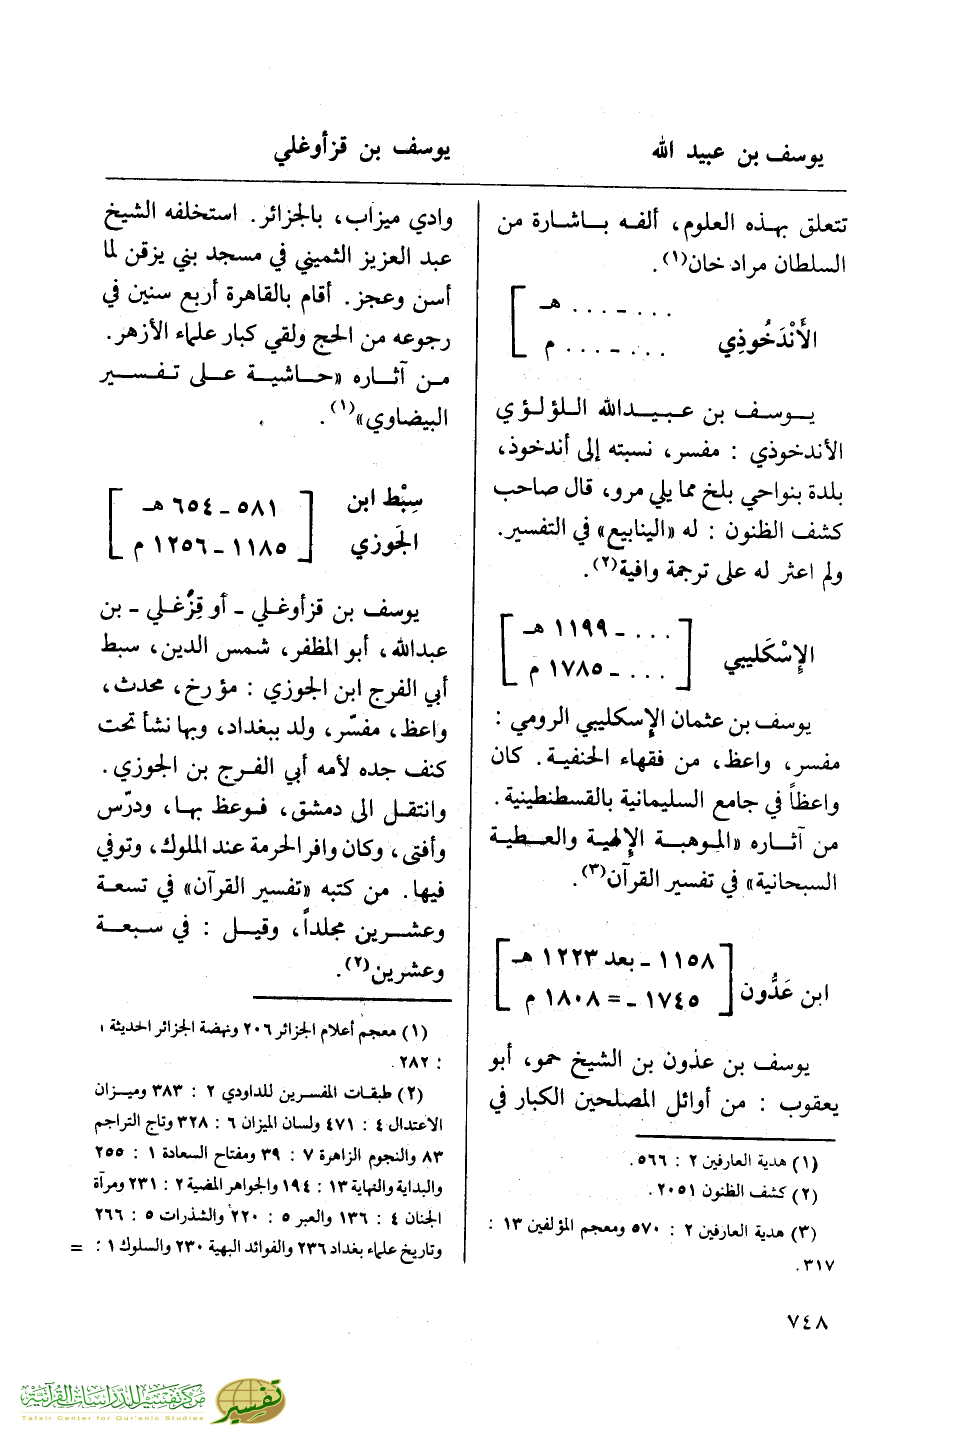 يوسف بن عبيد الله
يوسف بن قزأوغلي
تتعلق بهذه العلوم، ألفه باشارة من
السلطان مراد خان(١).
الأَنْدَخُوذِي
[ . . . - . . . هـ
. . . - . . . م
يوسف بن عبيدالله اللؤلؤي
الأندخوذي : مفسر، نسبته إلى أندخوذ،
بلدة بنواحي بلخ مما يلي مرو، قال صاحب
كشف الظنون : له «الينابيع» في التفسير.
ولم اعثر له على ترجمة وافية(٢).
الإِسْكَليبي
[ . . . - ١١٩٩ هـ ]
[ . . . - ١٧٨٥ م ]
يوسف بن عثمان الإسكليبي الرومي :
مفسر، واعظ، من فقهاء الحنفية. كان
واعظاً في جامع السليمانية بالقسطنطينية.
من آثاره «الموهبة الإلهية والعطية
السبحانية» في تفسير القرآن(٣).
ابن عَدُّون
[ ١١٥٨ - بعد ١٢٢٣ هـ ]
[ ١٧٤٥ - = ١٨٠٨ م ]
يوسف بن عذون بن الشيخ حمو، أبو
يعقوب : من أوائل المصلحين الكبار في
(١) هدية العارفين ٢ : ٥٦٦.
(٢) كشف الظنون ٢٠٥١.
(٣) هدية العارفين ٢ : ٥٧٠ ومعجم المؤلفين ١٣ :
٣١٧.
وادي ميزاب، بالجزائر. استخلفه الشيخ
عبد العزيز الثميني في مسجد بني يزقن لما
أسن وعجز. أقام بالقاهرة أربع سنين في
رجوعه من الحج ولقي كبار علماء الأزهر.
من آثاره «حاشية على تفسير
البيضاوي»(١).
سِبْط ابن
الجَوزي
[ ٥٨١ - ٦٥٤ هـ ]
[ ١١٨٥ - ١٢٥٦ م ]
يوسف بن قزأوغلي - أو قِزُغلي - بن
عبدالله، أبو المظفر، شمس الدين، سبط
أبي الفرج ابن الجوزي : مؤرخ، محدث،
واعظ، مفسّر، ولد ببغداد، وبها نشأ تحت
كنف جده لأمه أبي الفرج بن الجوزي.
وانتقل الى دمشق، فوعظ بها، ودرّس
وأفتى، وكان وافر الحرمة عند الملوك، وتوفي
فيها. من كتبه «تفسير القرآن» في تسعة
وعشرين مجلداً، وقيل : في سبعة
وعشرين(٢).
(١) معجم أعلام الجزائر ٢٠٦ ونهضة الجزائر الحديثة ١
: ٢٨٢.
(٢) طبقات المفسرين للداودي ٢ : ٣٨٣ وميزان
الاعتدال ٤ : ٤٧١ ولسان الميزان ٦ : ٣٢٨ وتاج التراجم
٨٣ والنجوم الزاهرة ٧ : ٣٩ ومفتاح السعادة ١ : ٢٥٥
والبداية والنهاية ١٣ : ١٩٤ والجواهر المضية ٢ : ٢٣١ ومرآة
الجنان ٤ : ١٣٦ والعبر ٥ : ٢٢٠ والشذرات ٥ : ٢٦٦
وتاريخ علماء بغداد ٢٣٦ والفوائد البهية ٢٣٠ والسلوك ١ : =
٧٤٨
مركز تفسير للدراسات القرآنية
Tafsir Center for Qur'anic Studies
تفسير